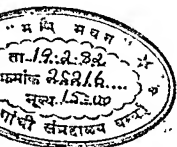 " म णि भ व न "
ता. 19.2.82
क्रमांक 25216....
मूल्य. 15.00
गांधी संग्रहालय